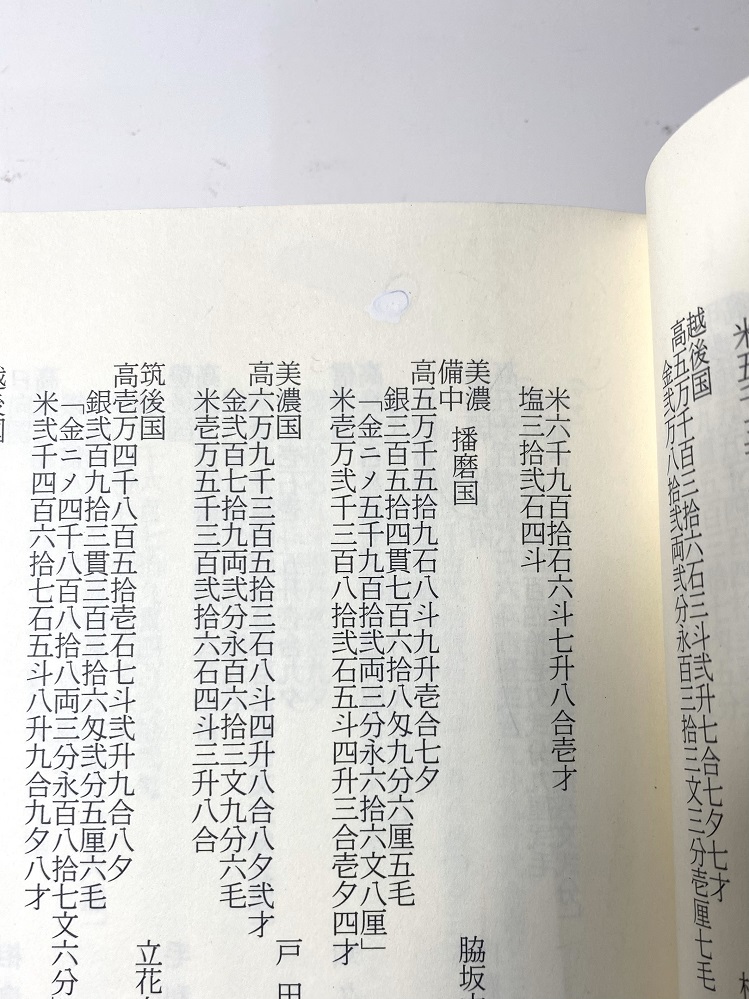 米五
越後国
高五万千百三拾六石三斗弐升七合七夕七才
金弐万八拾弐両弐分永百三拾三文三分壱厘七毛
米六千九百拾石六斗七升八合壱才
塩三拾弐石四斗
美濃 播磨国
備中
脇坂
高五万千五拾九石八斗九升壱合七夕
銀三百五拾四貫七百六拾八匁九分六厘五毛
「金ニノ五千九百拾弐両三分永六拾六文八厘」
米壱万弐千三百八拾弐石五斗四升三合壱夕四才
美濃国
戸田
高六万九千三百五拾三石八斗四升八合八夕弐才
金弐百七拾九両弐分永百六拾三文九分六毛
米壱万五千三百弐拾六石四斗三升八合
筑後国
立花
高壱万四千八百五拾壱石七斗弐升九合八夕
銀弐百九拾三貫三百三拾六匁弐分五厘六毛
「金ニノ四千八百八拾八両三分永百八拾七文六分
米弐千四百六拾七石五斗八升九合九夕八才
越後国